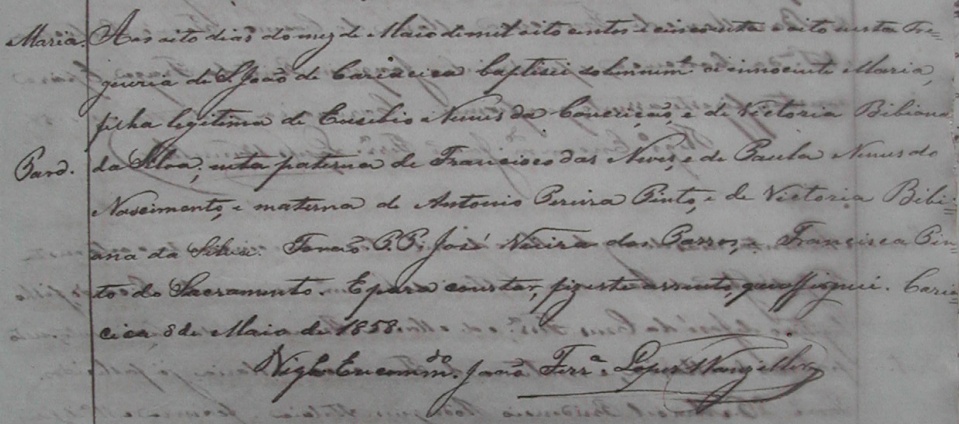 Maria. Aos oito dias do mez de Maio de mil oito centos e cincoenta e oito nesta Fre=
guezia de S. João de Cariacica baptisei solemnm. a innocente Maria,
filha legitima de Eusebio Nunes da Conceição, e de Victoria Bibiana
Pard. da Silva; neta paterna de Francisco das Neves, e de Paula Nunes do
Nascimento, e materna de Antonio Pereira Pinto, e de Victoria Bibi=
ana da Silva. Forão P.P. José Vieira das Barros, e Francisca Pin=
to do Sacramento. E para constar, fiz este assento, que assignei. Caria=
cica 8 de Maio de 1858.
Vigr.o Encomm.do João Ferr.a Lopes